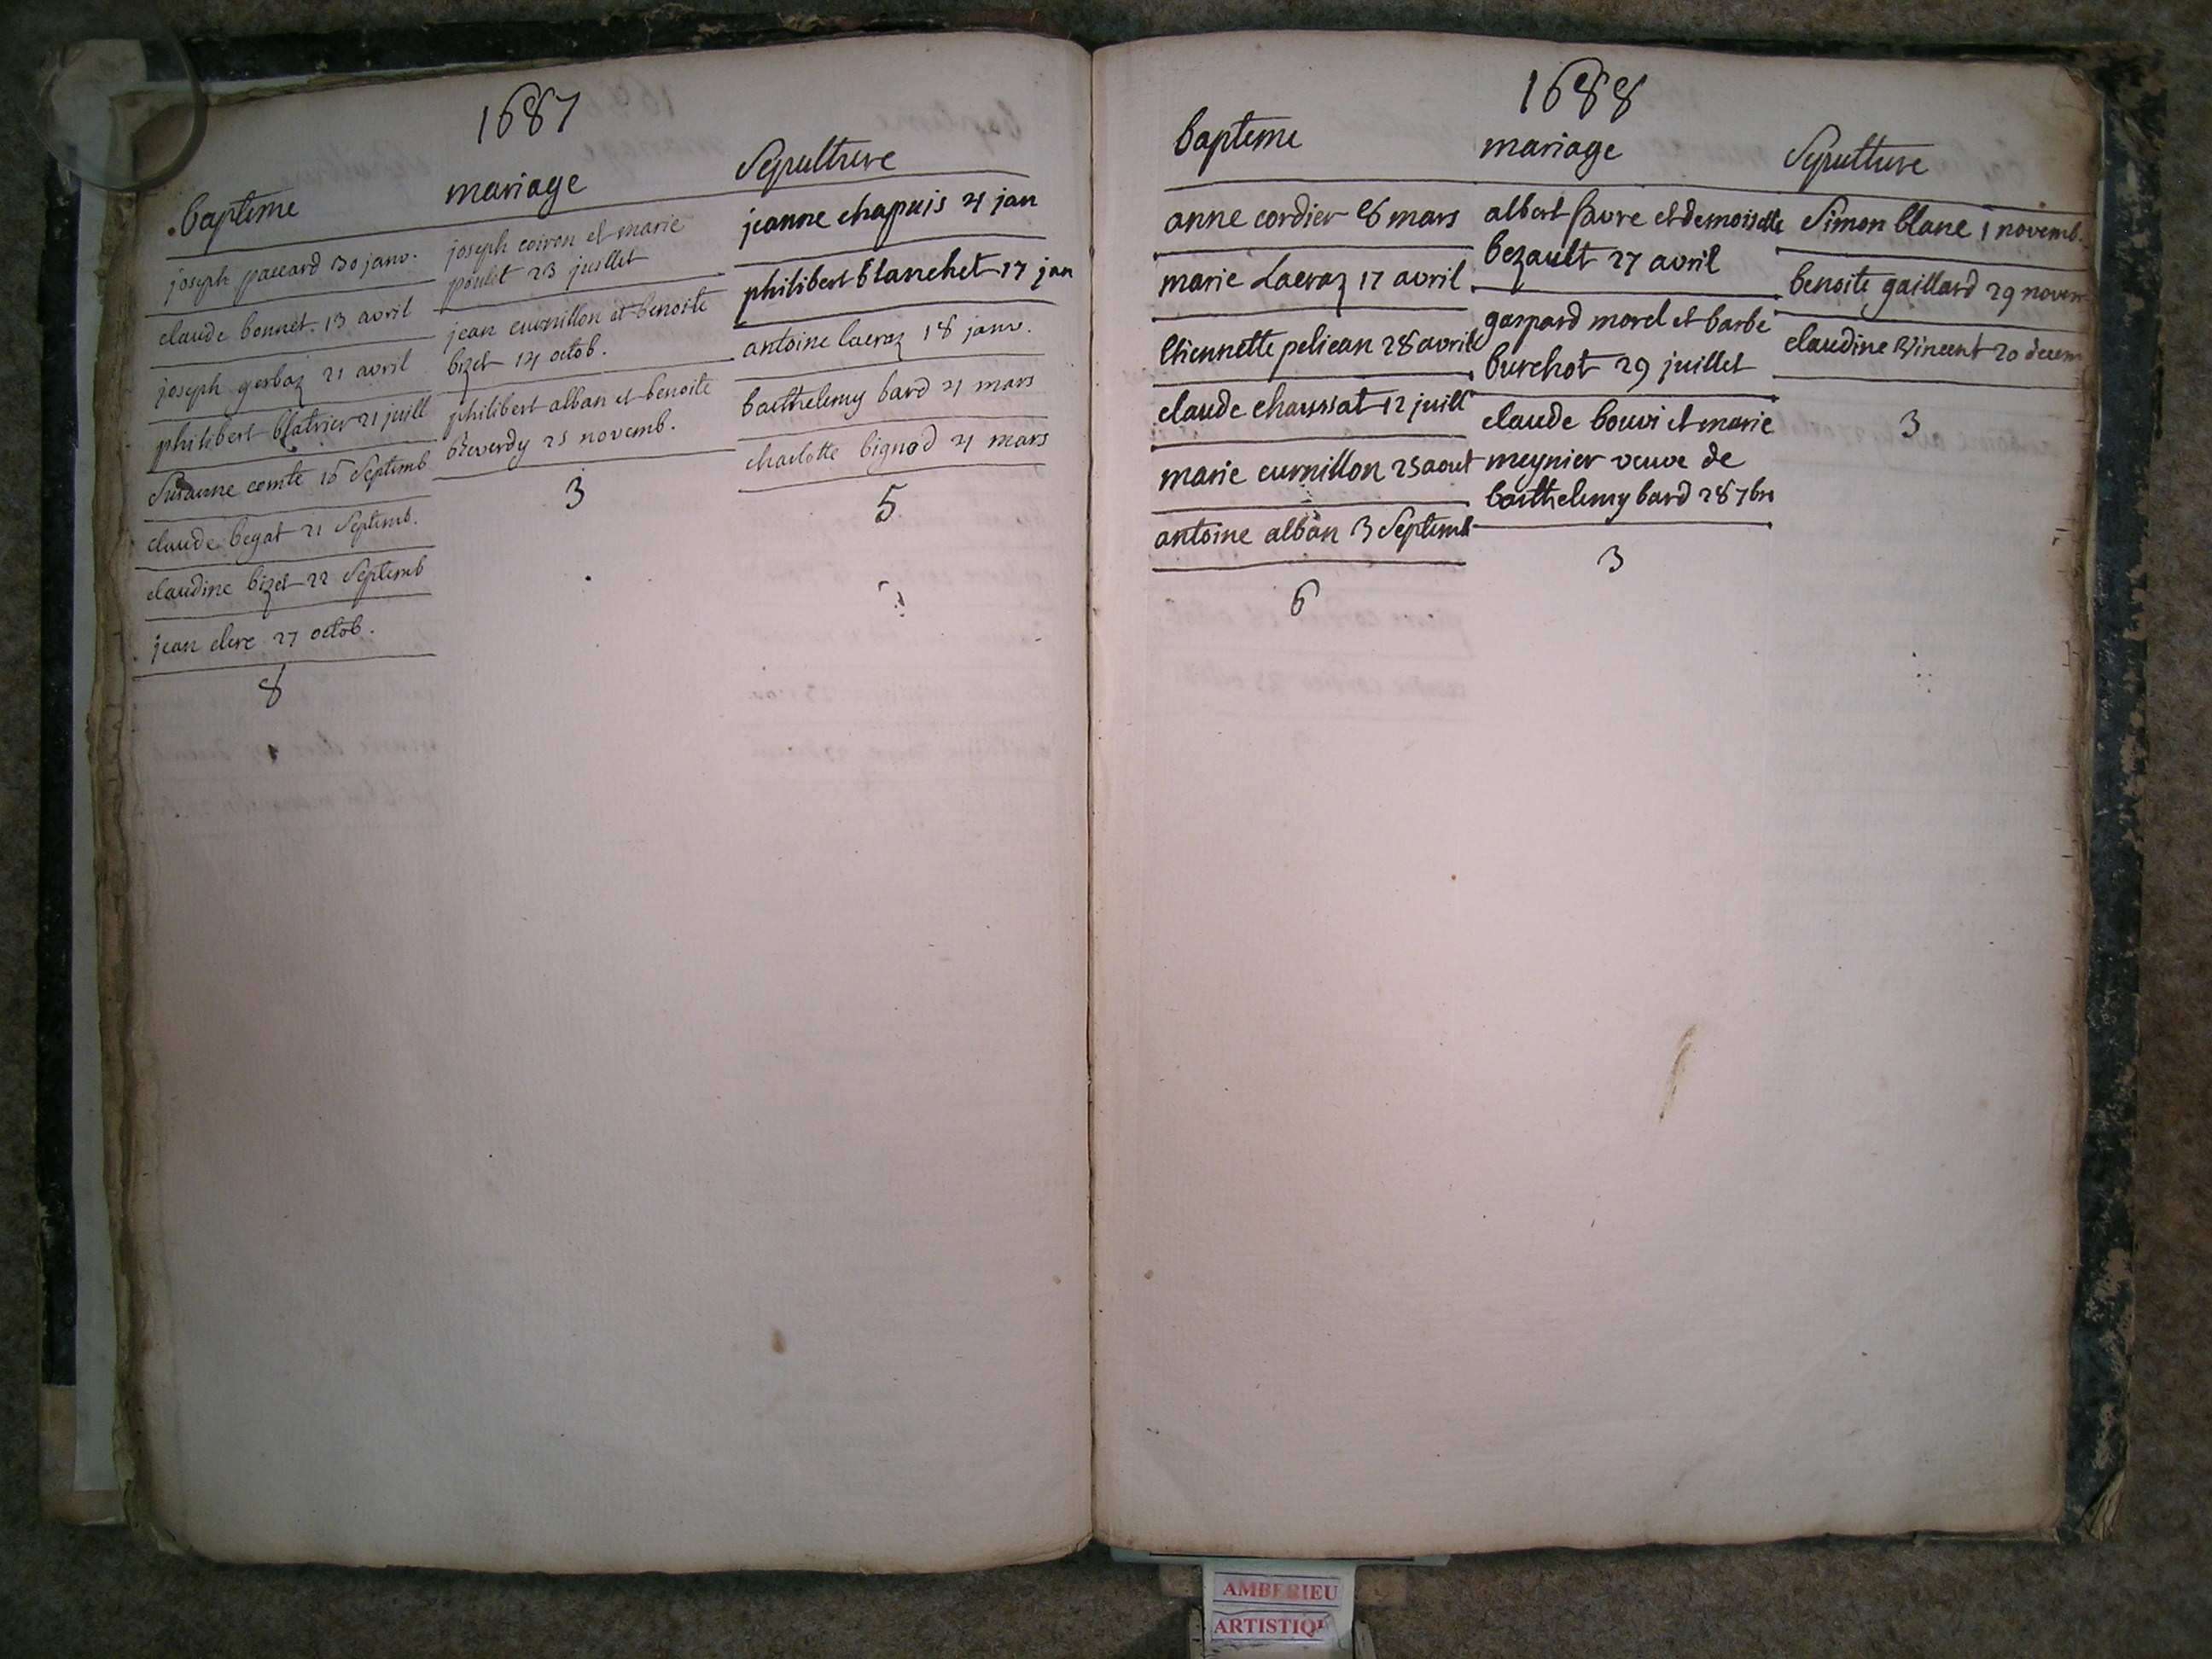 1687
bapteme
joseph paccard 30 janv.
claude bonnet. 13 avril
joseph gerbaz 21 avril
philibert blatrier 21 juill
Susanne comte 16 Septemb
claude begat 21 Septemb.
claudine bizet 22 Septemb
jean clerc 27 octob.
8
mariage
joseph coiron et marie
poulet 23 juillet
jean curnillon et benoite
bizet 14 octob.
philibert alban et benoite
reverdy 25 novemb.
3
Sepulture
jeanne chapuis 4 jan
philibert blanchet 17 jan
antoine lacraz 18 janv.
barthelemy bard 4 mars
charlotte bignod 4 mars
5
1688
bapteme
anne cordier 8 mars
marie Lacraz 17 avril
Etiennette pelican 28 avril
claude chaussat 12 juill
marie curnillon 25 aout
antoine alban 3 Septemb
6
mariage
albert favre et demoiselle
bezault 27 avril
gaspard morel et barbe
burchot 29 juillet
claude bouvi et marie
meynier veuve de
barthelemy bard 28 7bre
3
Sepulture
Simon blanc 1 novemb.
benoite gaillard 29 novem
claudine Vincent 20 decem
3
AMBERIEU
ARTISTIQU